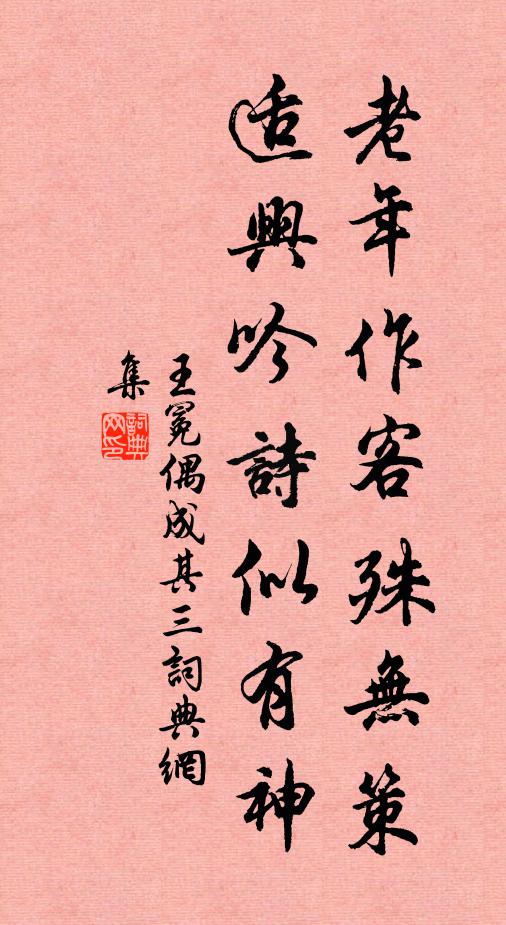 老年作客殊無策
適興吟詩似有神
王冕偶成其三詞典網
集
詞典
網印